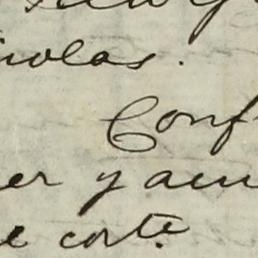 icolas.
Conf
er y aun
e corte